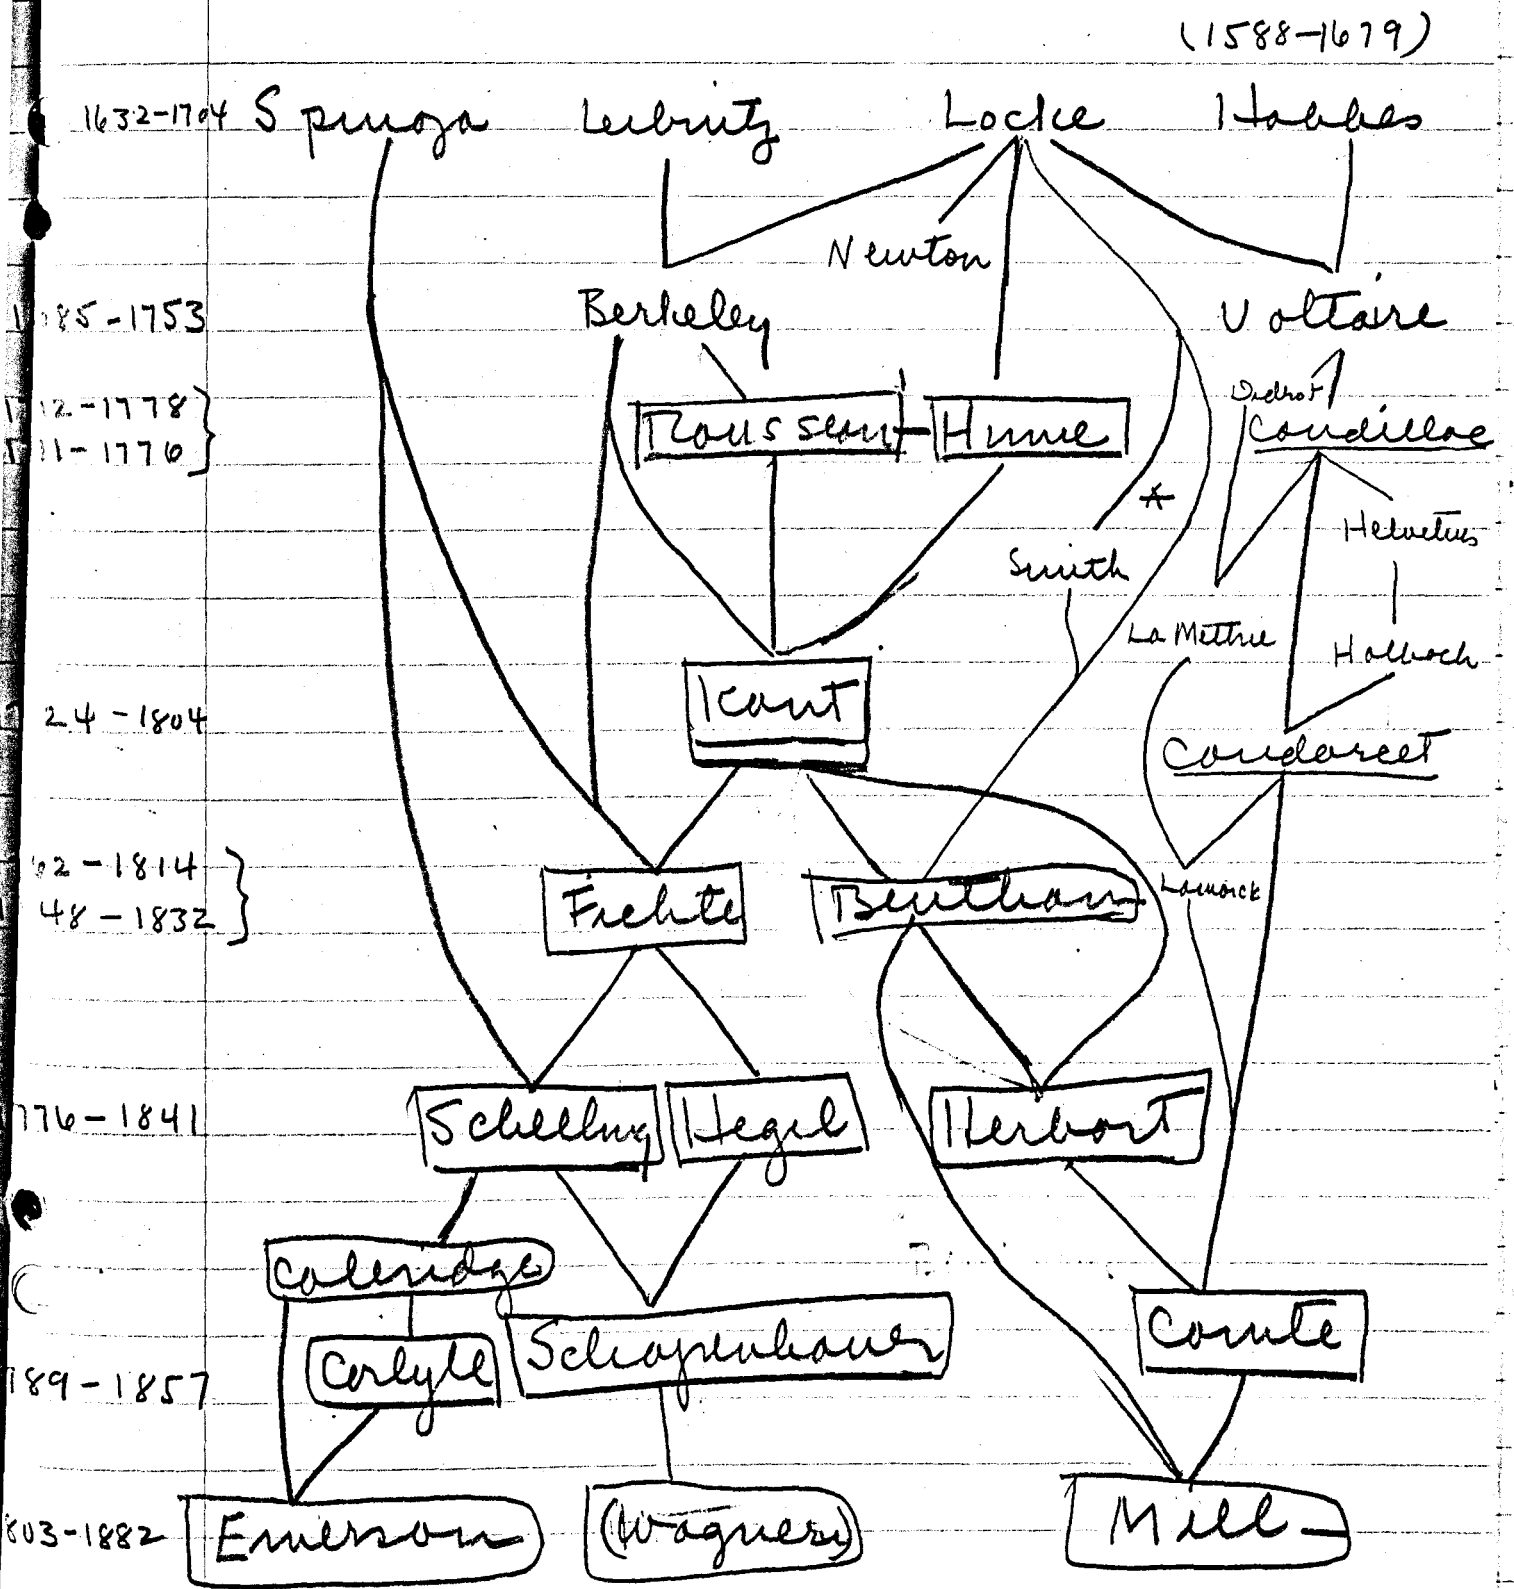 (1588-1679)
1632-1704 Spinoza Leibnitz Locke Hobbes
Newton
85-1753 Berkeley Voltaire
Didrot
12-1778 Rousseau Hume Condillac
11-1776
Helvetius
Smith
La Mettrie Holbach
24-1804 Kant
Condorcet
62-1814 Fichte Bentham Lamarck
48-1832
776-1841 Schelling Hegel Herbart
Coleridge
789-1857 Carlyle Schopenhauer Comte
803-1882 Emerson (Wagner) Mill